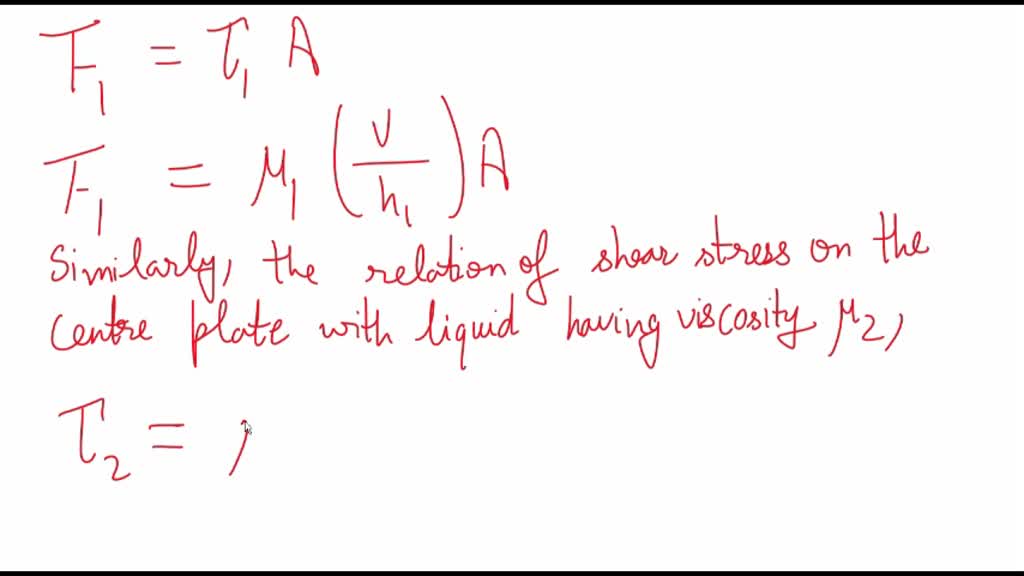 F₁ = τ₁ A
F₁ = μ₁ (V/h₁) A
Similarly, the relation of shear stress on the
centre plate with liquid having viscosity μ2,
τ₂ =